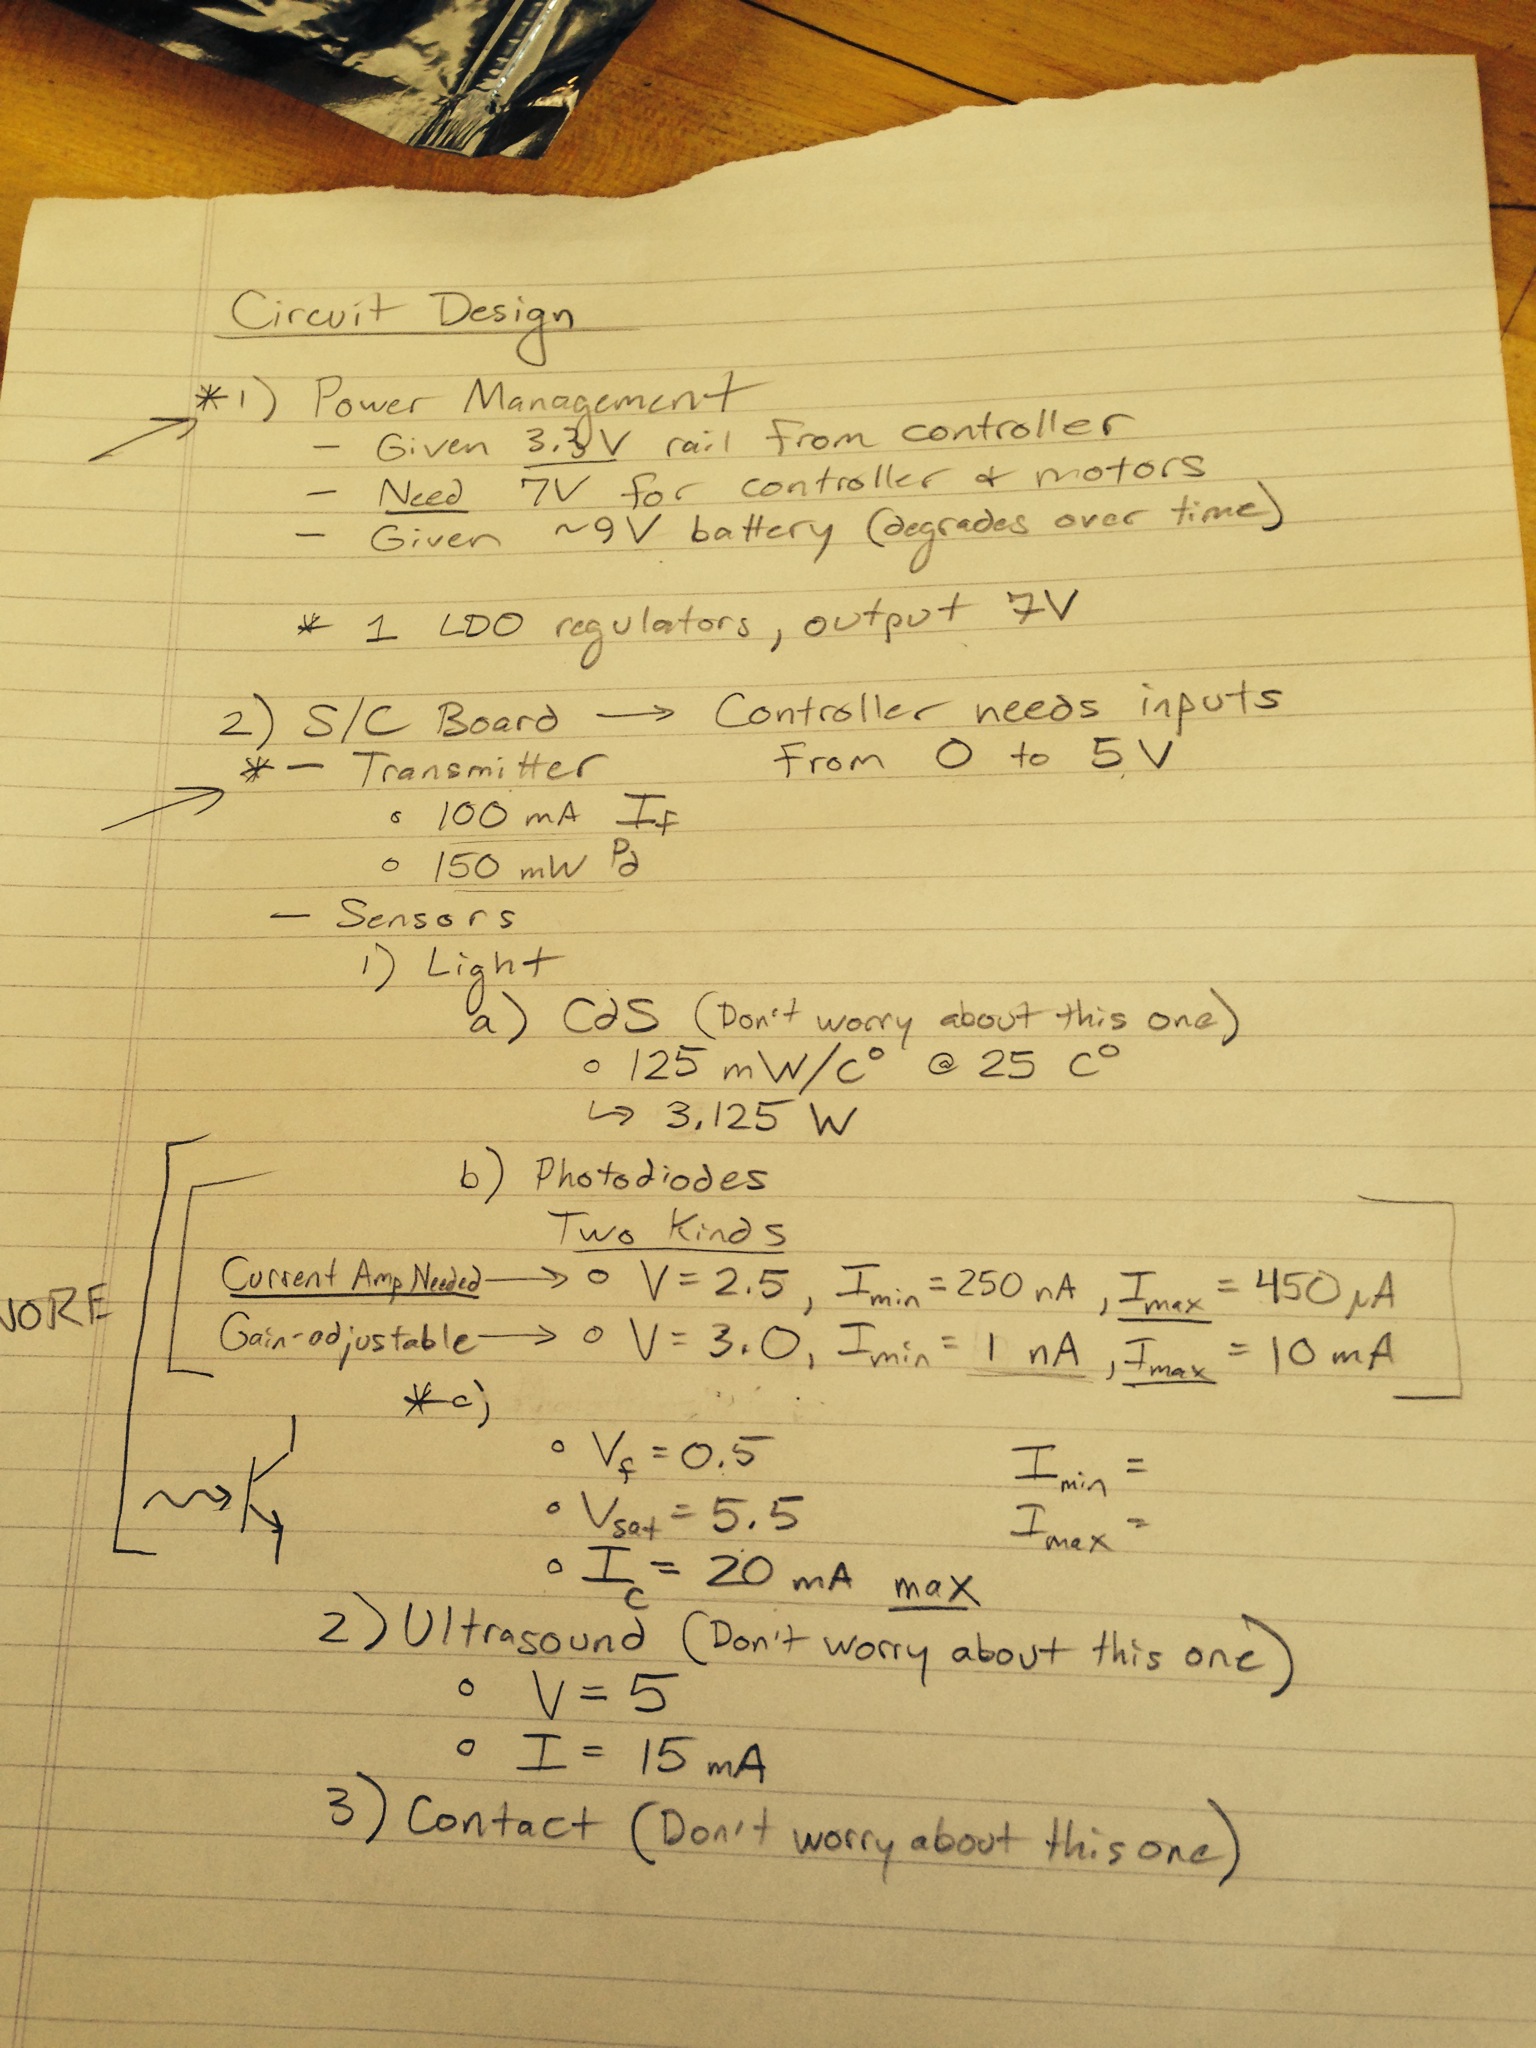 Circuit Design
* 1) Power Management
- Given 3.3V rail from controller
- Need 7V for controller & motors
- Given ~9V battery (degrades over time)
* 1 LDO regulators, output 7V
2) S/C Board → Controller needs inputs
from 0 to 5V
* - Transmitter
○ 100 mA If
○ 150 mW Pd
- Sensors
1) Light
a) CdS (Don't worry about this one)
○ 125 mW/C° @ 25 C°
↳ 3.125 W
b) Photodiodes
Two Kinds
Current Amp Needed → ○ V = 2.5, Imin = 250 nA, Imax = 450 μA
Gain-adjustable → ○ V = 3.0, Imin = 1 nA, Imax = 10 mA
* c)
○ Vf = 0.5 Imin =
○ Vsat = 5.5 Imax =
○ Ic = 20 mA max
2) Ultrasound (Don't worry about this one)
○ V = 5
○ I = 15 mA
3) Contact (Don't worry about this one)